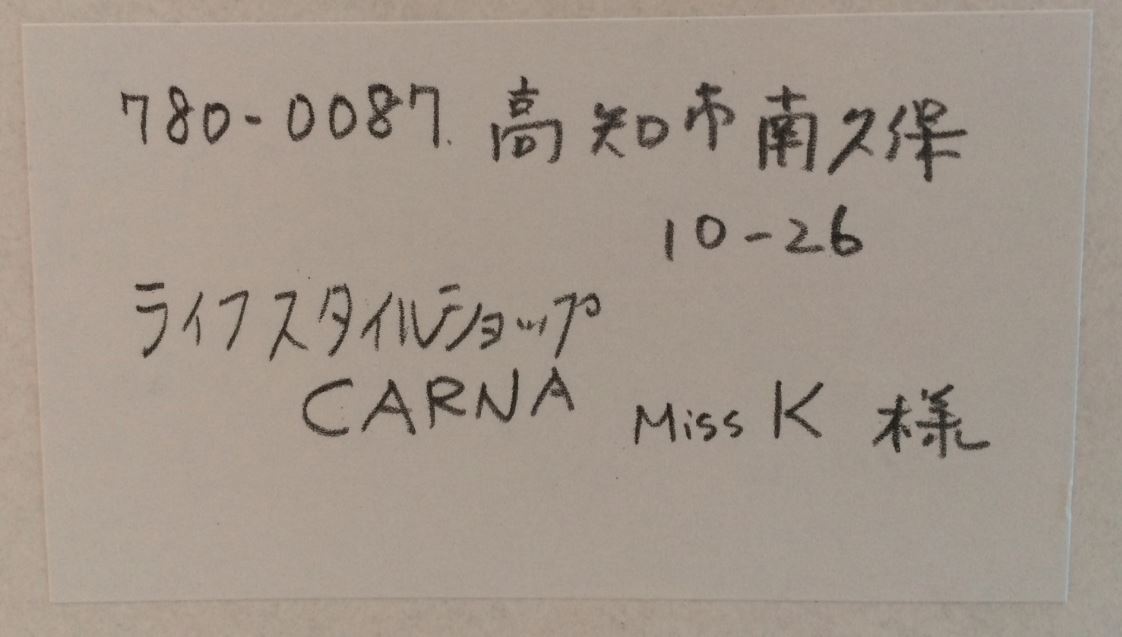 780-0087. 高知市南久保
10-26
ライフスタイルショップ
CARNA Miss K 様